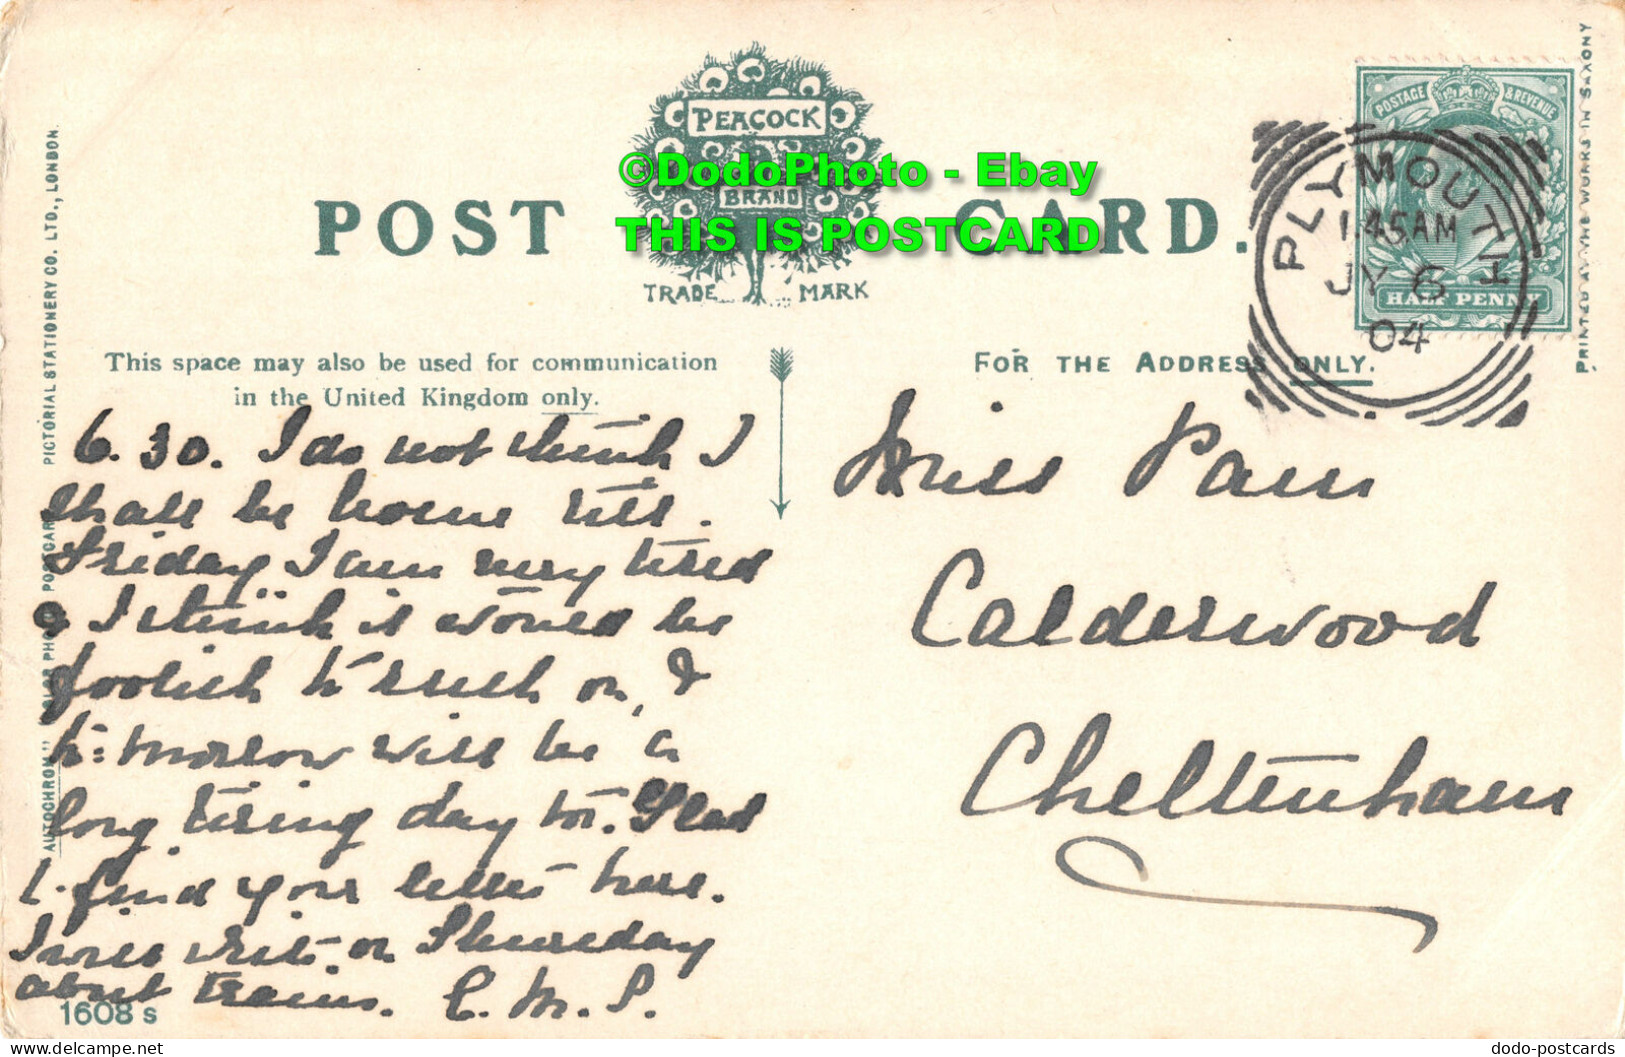 PEACOCK
BRAND
TRADE MARK
POST CARD.
©DodoPhoto - Ebay
THIS IS POSTCARD
POSTAGE & REVENUE
HALF PENNY
PLYMOUTH
1.45AM
JY 6
04
PRINTED AT THE WORKS IN SAXONY
This space may also be used for communication
in the United Kingdom only.
FOR THE ADDRESS ONLY.
6.30. I do not think I
shall be home till
Friday I am very tired
& I think it would be
foolish to rush on, &
to=morrow will be a
long tiring day too. Glad
to find your letter here.
I will write on Thursday
about trains. C. M. P.
Miss Pain
Calderwood
Cheltenham
"AUTOCHROM" COLOR PHOTO POSTCARD PICTORIAL STATIONERY CO. LTD., LONDON.
1608 s
dodo-postcards
delcampe.net